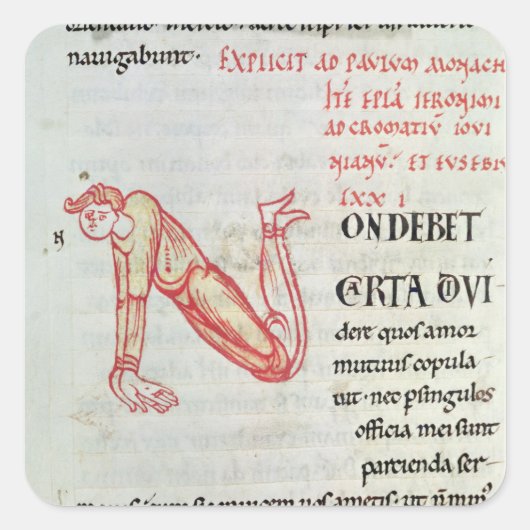 nauigabunt. EXPLICIT AD PAULUM MONACH
ITE EPLA IERONIMI
AD CROMATIU IOUI
NIANU. ET EUSEBIU
LXX I
N
ON DEBET
CARTA DIVI
dere quos amor
mutuus copula
uit. nec p singulos
officia mei sunt
partienda ser